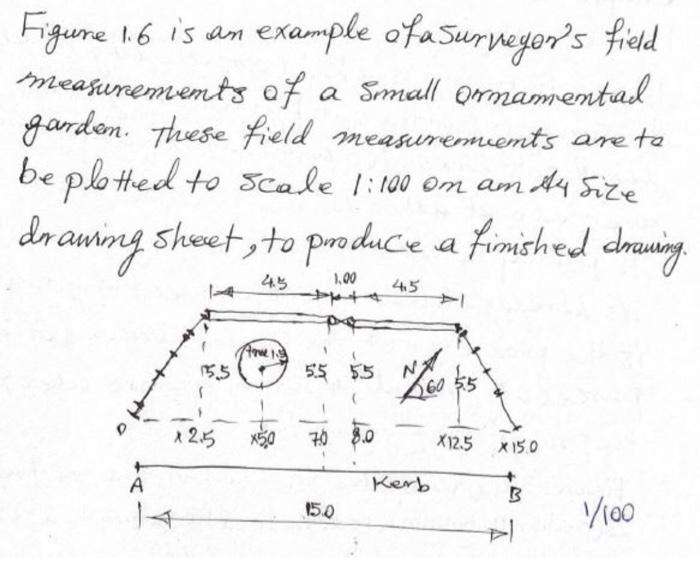 Figure 1.6 is an example of a Surveyor's field
measurements of a small ornamental
garden. These field measurements are to
be plotted to scale 1:100 on an A4 size
drawing sheet, to produce a finished drawing.
4.5 1.00 4.5
5.5 tree 1.5 5.5 5.5 N 60 5.5
0 x 2.5 x5.0 7.0 8.0 x12.5 x15.0
A Kerb B
15.0 1/100